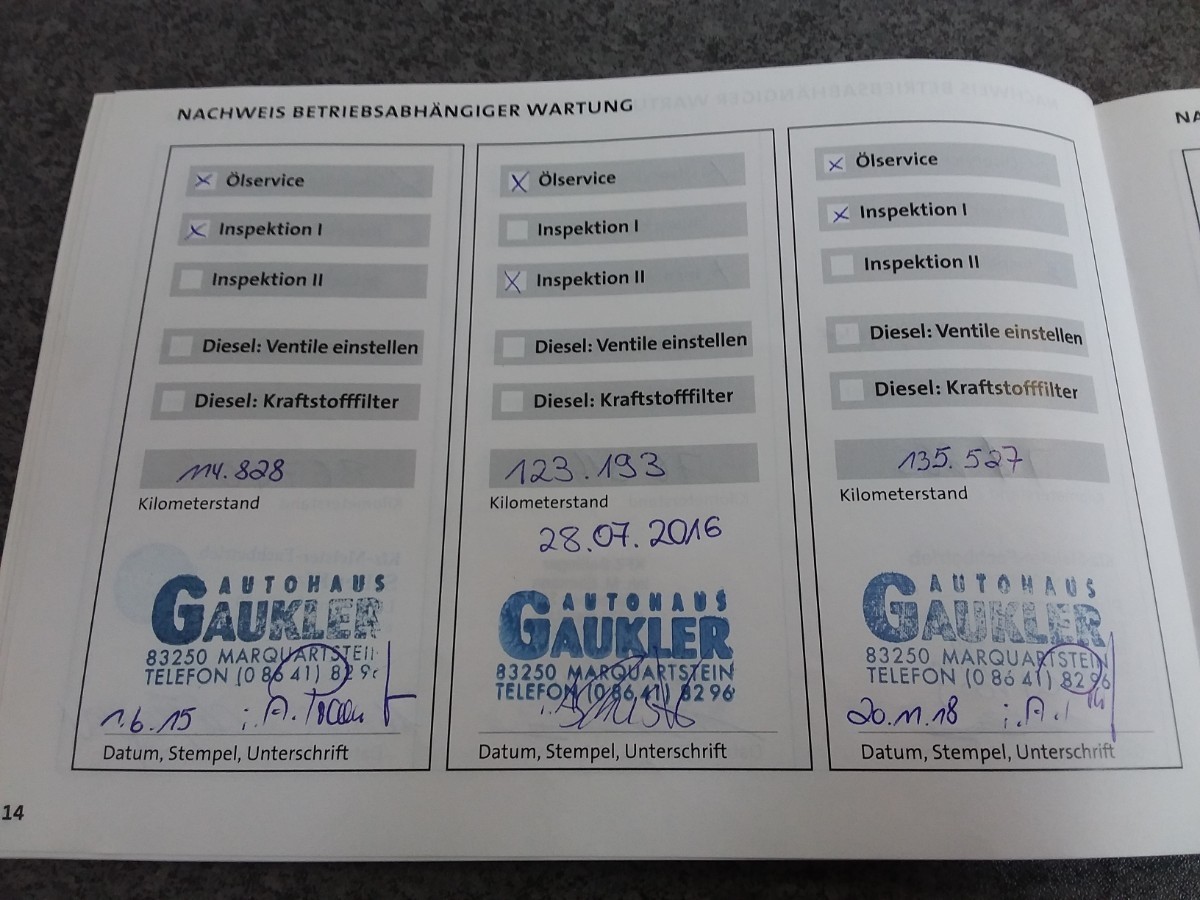 NACHWEIS BETRIEBSABHÄNGIGER WARTUNG
NA
x Ölservice
x Inspektion I
Inspektion II
Diesel: Ventile einstellen
Diesel: Kraftstofffilter
114.828
Kilometerstand
AUTOHAUS
GAUKLER
83250 MARQUARTSTEI
TELEFON (0 86 41) 82 9
1.6.15 i.A.
Datum, Stempel, Unterschrift
x Ölservice
Inspektion I
x Inspektion II
Diesel: Ventile einstellen
Diesel: Kraftstofffilter
123.193
Kilometerstand
28.07.2016
AUTOHAUS
GAUKLER
83250 MARQUARTSTEIN
TELEFON (0 86 41) 82 96
Datum, Stempel, Unterschrift
x Ölservice
x Inspektion I
Inspektion II
Diesel: Ventile einstellen
Diesel: Kraftstofffilter
135.527
Kilometerstand
AUTOHAUS
GAUKLER
83250 MARQUARTSTEIN
TELEFON (0 86 41) 82 96
20.11.18 i.A.
Datum, Stempel, Unterschrift
14